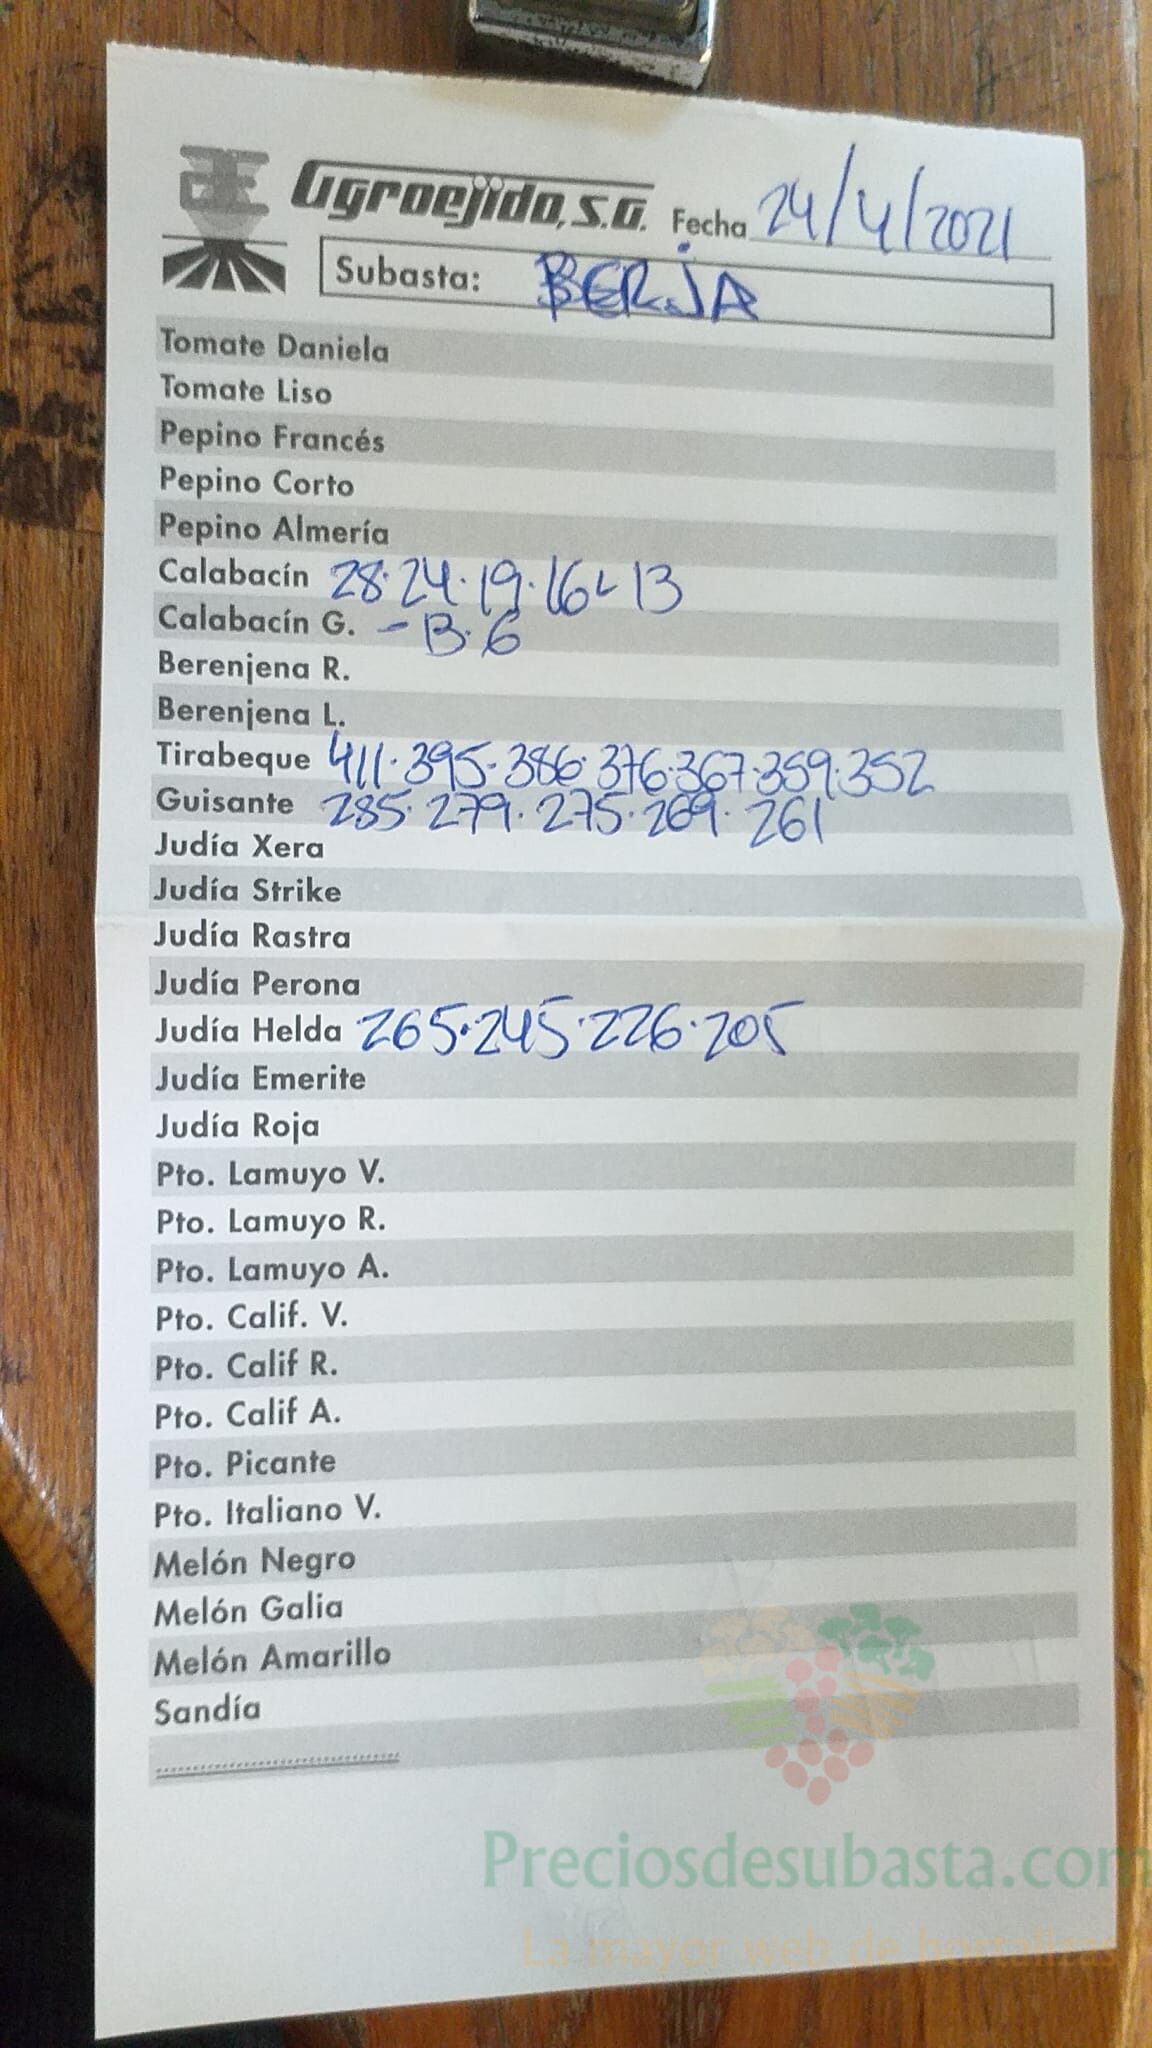 Agroejido, S.A. Fecha 24/4/2021
Subasta: BERJA
Tomate Daniela
Tomate Liso
Pepino Francés
Pepino Corto
Pepino Almería
Calabacín 28·24·19·16-13
Calabacín G. -13·6
Berenjena R.
Berenjena L.
Tirabeque 411·395·386·376·367·359·352
Guisante 285·279·275·269·261
Judía Xera
Judía Strike
Judía Rastra
Judía Perona
Judía Helda 265·245·226·205
Judía Emerite
Judía Roja
Pto. Lamuyo V.
Pto. Lamuyo R.
Pto. Lamuyo A.
Pto. Calif. V.
Pto. Calif R.
Pto. Calif A.
Pto. Picante
Pto. Italiano V.
Melón Negro
Melón Galia
Melón Amarillo
Sandía
Preciosdesubasta.com
La mayor web de hortalizas